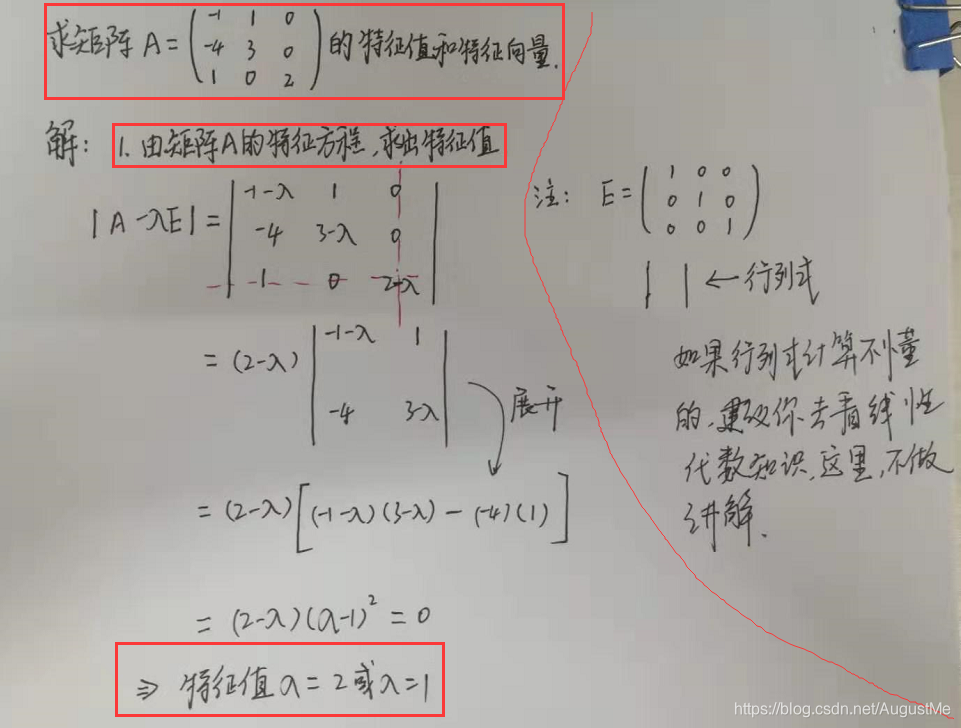 求矩阵 A = ( -1 1 0
-4 3 0
1 0 2 ) 的特征值和特征向量.
解: 1. 由矩阵A的特征方程,求出特征值
|A-λE| = | -1-λ 1 0
-4 3-λ 0
1 0 2-λ |
= (2-λ) | -1-λ 1
-4 3-λ |
展开
= (2-λ)[(-1-λ)(3-λ) - (-4)(1)]
= (2-λ)(λ-1)² = 0
⇒ 特征值 λ = 2 或 λ = 1
注: E = ( 1 0 0
0 1 0
0 0 1 )
| | ← 行列式
如果行列式计算不懂
的,建议你去看线性
代数知识,这里,不做
讲解.
https://blog.csdn.net/AugustMe